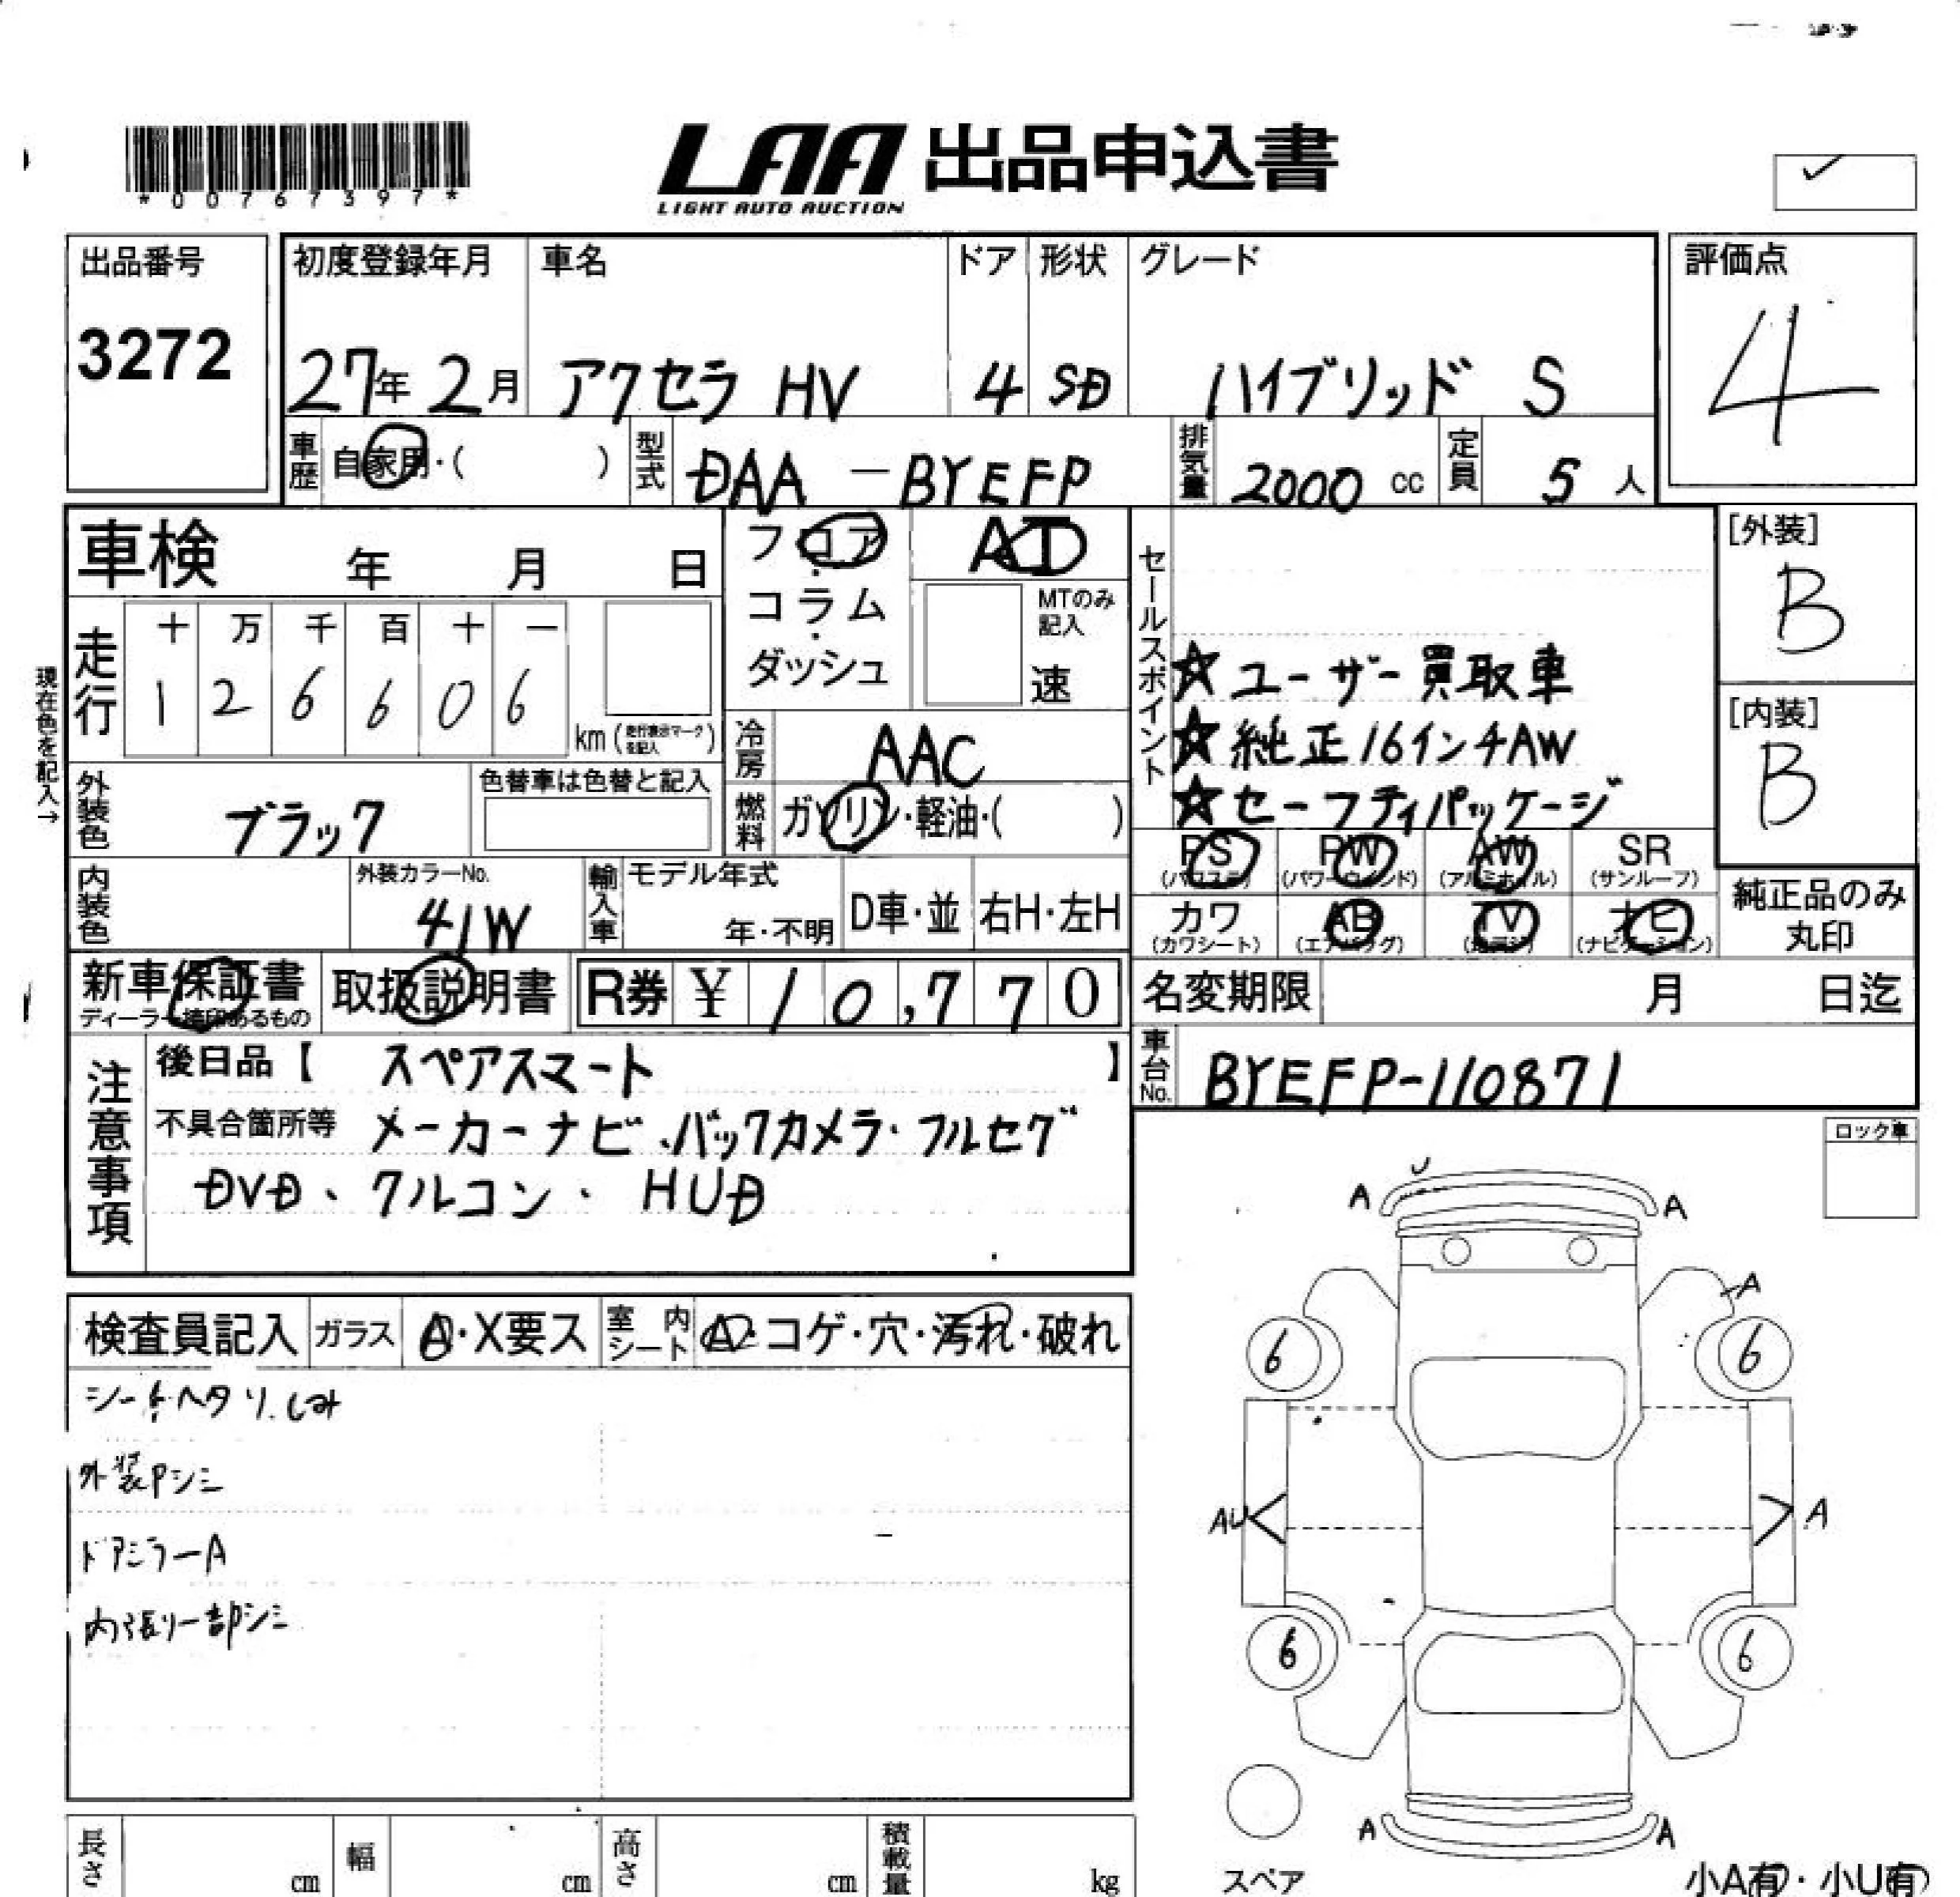 *00767397*
LAA 出品申込書
LIGHT AUTO AUCTION
出品番号
3272
初度登録年月
27年 2月
車名
アクセラ HV
ドア
4
形状
SD
グレード
ハイブリッド S
評価点
4
車歴 自家用・( )
型式 DAA-BYEFP
排気量 2000 cc
定員 5 人
車検 年 月 日
フロア・
コラム・
ダッシュ
AT
MTのみ
記入
速
セールスポイント
☆ユーザー買取車
☆純正16インチAW
☆セーフティパッケージ
[外装]
B
[内装]
B
現在色を記入→
走行
十 万 千 百 十 一
1 2 6 6 0 6
km(走行表示マークを記入)
冷房 AAC
燃料 ガソリン・軽油・( )
外装色 ブラック
色替車は色替と記入
内装色
外装カラーNo.
41W
輸入車
モデル年式
年・不明
D車・並
右H・左H
PS
(パワステ)
PW
(パワーウィンド)
AW
(アルミホイル)
SR
(サンルーフ)
カワ
(カワシート)
AB
(エアバッグ)
TV
(地デジ)
ナビ
(ナビゲーション)
純正品のみ
丸印
新車保証書
ディーラー捺印あるもの
取扱説明書
R券 ¥ 10,770
名変期限 月 日迄
車台No. BYEFP-110871
注意事項
後日品【 スペアスマート 】
不具合箇所等 メーカーナビ、バックカメラ・フルセグ
DVD、クルコン、HUD
ロック車
検査員記入
ガラス A・X要ス
室内シート A・コゲ・穴・汚れ・破れ
シートヘタリ.しみ
外装Pシミ
ドアミラーA
内張り一部シミ
A A
A
6 6
AU A
6 6
A A
スペア
小A有・小U有
長さ cm
幅 cm
高さ cm
積載量 kg